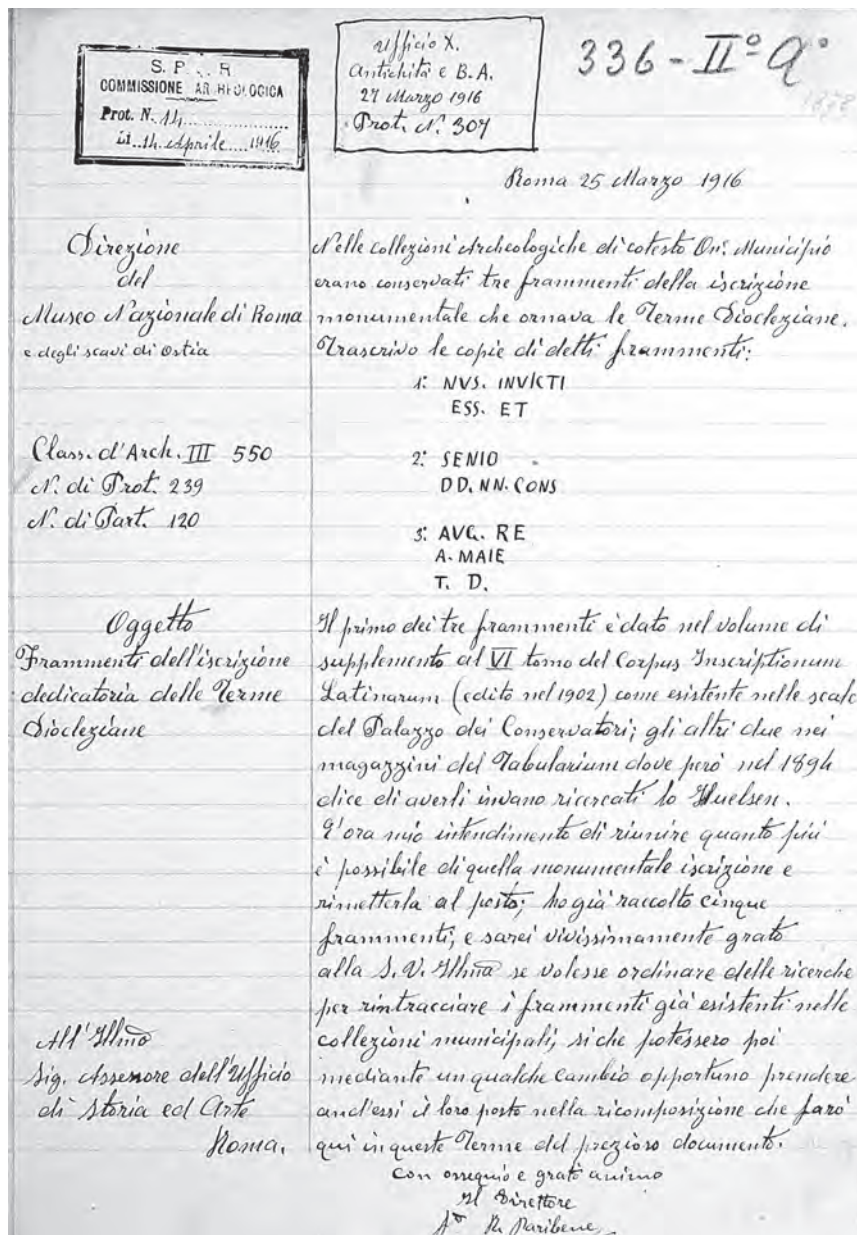 S. P. R
COMMISSIONE ARCHEOLOGICA
Prot. N. 14
Li 14 Aprile 1916
Ufficio X.
Antichità e B.A.
27 Marzo 1916
Prot. N. 307
336 - IIº A°
1878
Roma 25 Marzo 1916
Direzione
del
Museo Nazionale di Roma
e degli scavi di Ostia
Class. d'Arch. III 550
N. di Prot. 239
N. di Part. 120
Oggetto
Frammenti dell'iscrizione
dedicatoria delle Terme
Diocleziane
All' Illmo
Sig. Assessore dell'Ufficio
di Storia ed Arte
Roma.
Nelle collezioni Archeologiche di cotesto On. Municipio
erano conservati tre frammenti della iscrizione
monumentale che ornava le Terme Diocleziane.
Trascrivo le copie di detti frammenti:
1: NVS. INVICTI
ESS. ET
2: SENIO
DD. NN. CONS
3: AVG. RE
A. MAIE
T. D.
Il primo dei tre frammenti è dato nel volume di
supplemento al VI tomo del Corpus Inscriptionum
Latinarum (edito nel 1902) come esistente nelle scale
del Palazzo dei Conservatori; gli altri due nei
magazzini del Tabularium dove però nel 1894
dice di averli invano ricercati lo Huelsen.
E' ora mio intendimento di riunire quanto più
è possibile di quella monumentale iscrizione e
rimetterla al posto; ho già raccolto cinque
frammenti, e sarei vivissimamente grato
alla S.V. Illma se volesse ordinare delle ricerche
per rintracciare i frammenti già esistenti nelle
collezioni municipali, sì che potessero poi
mediante un qualche cambio opportuno prendere
anch'essi il loro posto nella ricomposizione che farò
qui in queste Terme del prezioso documento.
con ossequio e grato animo
Il Direttore
fto R. Paribene